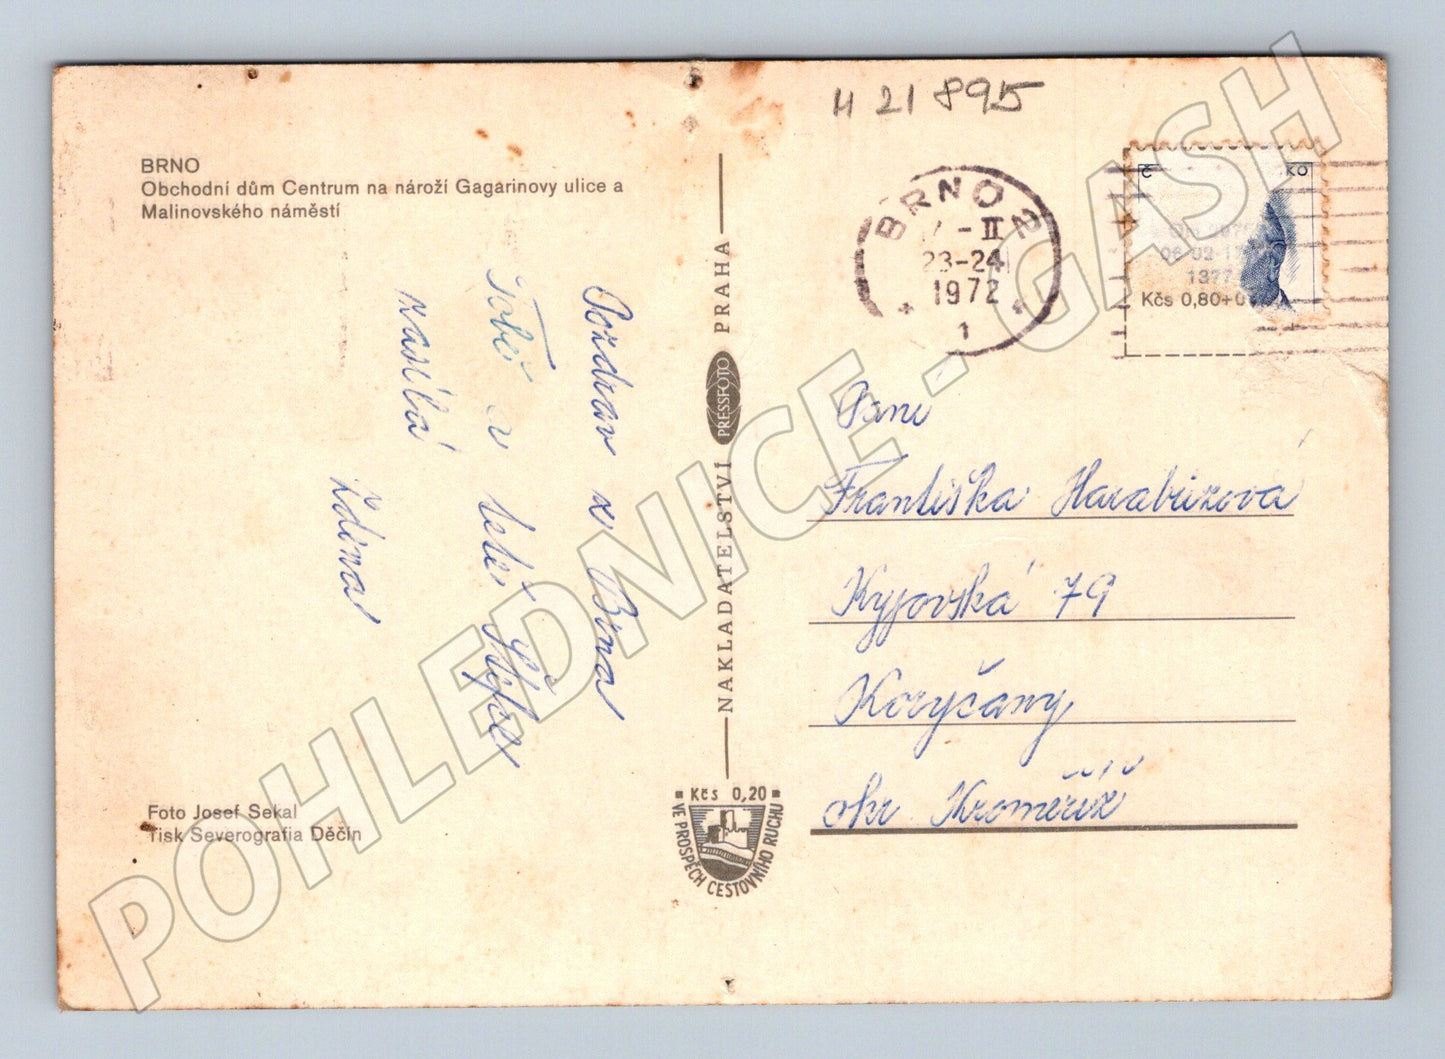 H 21 895
BRNO
Obchodní dům Centrum na nároží Gagarinovy ulice a
Malinovského náměstí
BRNO 2
- II
23-24
1972
1
Kčs 0,80+0
Pozdrav z Brna
Tobě a tetě
zasílá
Zdina
NAKLADATELSTVÍ PRESSFOTO PRAHA
Paní
Františka Harabrizová
Kyjovská 79
Koryčany
okr Kroměříž
Foto Josef Sekal
Tisk Severografia Děčín
Kčs 0,20
VE PROSPĚCH CESTOVNÍHO RUCHU
POHLEDNICE - GASH